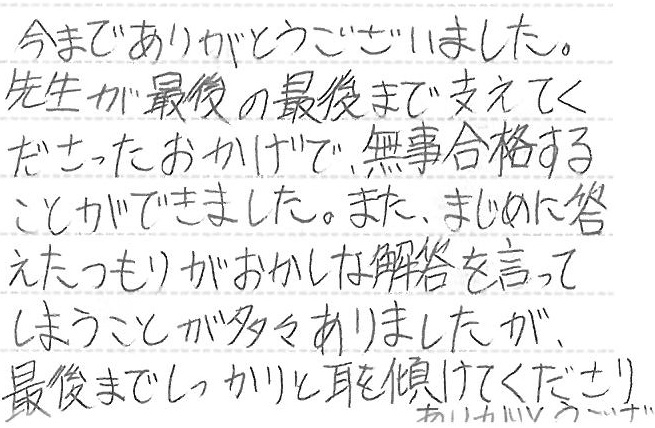 今までありがとうございました。
先生が最後の最後まで支えてく
ださったおかげで、無事合格する
ことができました。また、まじめに答
えたつもりがおかしな解答を言って
しまうことが多々ありましたが、
最後までしっかりと耳を傾けてくださり
ありがとうござ